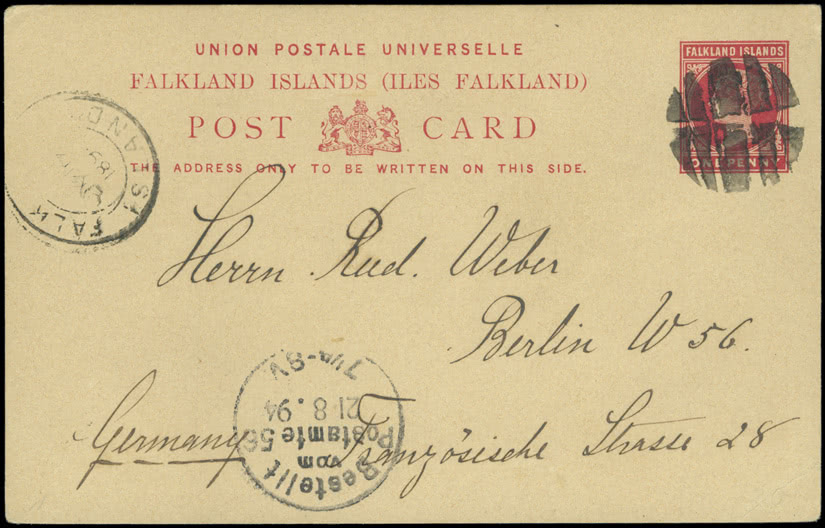 UNION POSTALE UNIVERSELLE
FALKLAND ISLANDS (ILES FALKLAND)
POST CARD
THE ADDRESS ONLY TO BE WRITTEN ON THIS SIDE.
FALKLAND ISLANDS
ONE PENNY
FALK AND IS
Herrn Rud. Weber
Berlin W 56.
Französische Strasse 28
Germany
Bestellt
vom
Postamte 56
21.8.94
7¼-8V